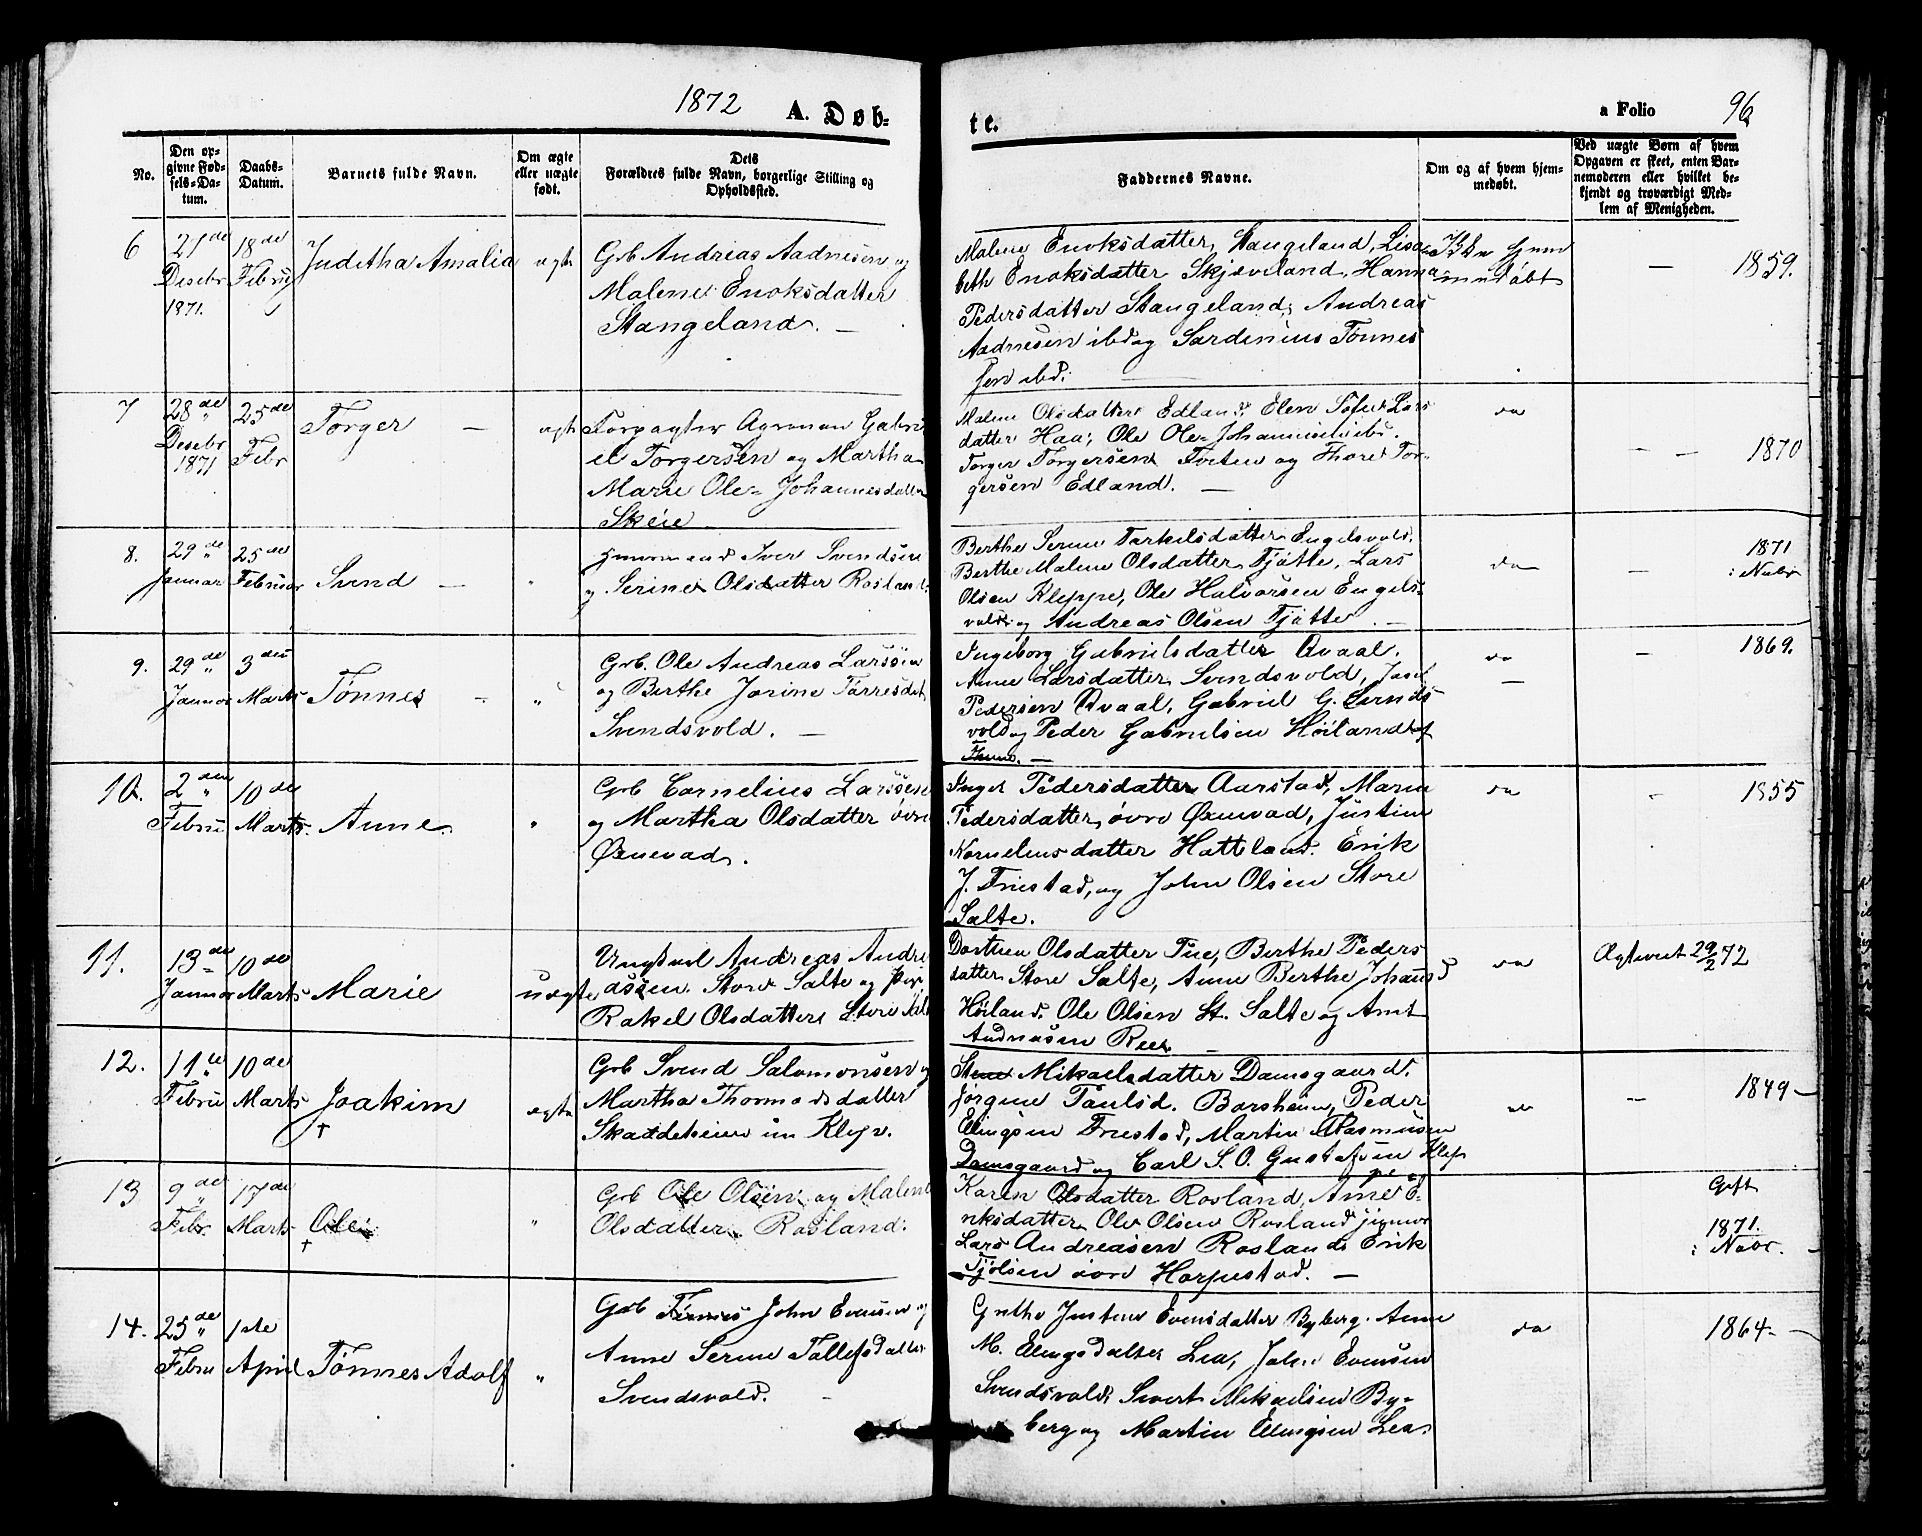 1872 A. Døb-
te. a Folio 96
No.
Den op-
givne Fød-
sels-Da-
tum.
Daabs-
Datum.
Barnets fulde Navn.
Om ægte
eller uægte
født.
Dets
Forældres fulde Navn, borgerlige Stilling og
Opholdssted.
Faddernes Navne.
Om og af hvem hjem-
medøbt.
Ved uægte Børn af hvem
Opgaven er skeet, enten Bar-
nemoderen eller hvilket be-
kjendt og troværdigt Med-
lem af Menigheden.
6 21de Desebr 1871. 18de Febru Juditha Amalia ægte
Grb Andreas Aadnesen og
Malene Enoksdatter
Stangeland. —
Malene Enoksdatter, Stangeland, Lisa-
beth Enoksdatter Skjæveland, Hanna
Pedersdatter Stangeland, Andreas
Aadnesen ibd og Sardinius Tønnes
sen ibd.
Ikke hjem
medøbt
— 1859.
7 28de Desebr 1871 25de Febr Torger — ægte
Forpagter Agronom Gabri
el Torgersen og Martha
Marie Ole-Johannesdatter
Skeie
Malene Olsdatter Edland, Elen Lars
datter Haa, Ole Ole-Johannesen
Torger Torgersen og Thore Tor-
gersen Edland. —
da
— — 1870
8. 29de Januar 25de Februar Svend — "
Iver Svendsen
og Serine Olsdatter Rosland
Berthe Serine Tarkelsdatter Engelsvold,
Berthe Malene Olsdatter Tjøtte, Lars
Olsen Kleppe, Ole Halvorsen Engels-
vold og Andreas Olsen Tjøtte. —
da
—
1871
: Nobr
9. 29de Januar 3die Marts Tønnes — "
Grb. Ole Andreas Larssen
og Berthe Jorine Tørresdat
Svendsvold. —
Ingeborg Gabrielsdatter Qvaal.
Anne Larsdatter Svendsvold,
Pedersen Qvaal, Gabriel G. Svends
vold og Peder Gabrielsen Høiland af
Thime. —
da
— 1869.
10. 2den Febru 10de Marts Anne "
Grb Cornelius Larssen
og Martha Olsdatter øvre
Øxnevad.
Inger Pedersdatter Aarstad, Maria
Pedersdatter, øvre Øxnevad, Justine
Kornelius datter Hatteland. Erik
J. Friestad, og John Olsen Store
Salte.
da
- 1855
11. 13de Januar 10de Marts Marie uægte
Ungkarl Andreas Andre
assen Store Salte og Pige
Rakel Olsdatter Store Salte
Dorthea Olsdatter Tue, Berthe Peders
datter Store Salte, Anne Berthe Johansd
Høiland. Ole Olsen St. Salte og Arnt
Andreasen Ree
da
Ægteviet 29/2 72
12. 11te Febru 10de Marts Joakim † ægte
Grb Svend Salomonsen og
Martha Thomasdatter
im Klep.
Mikaelsdatter Damsgaard.
Jørgine Paulsd. Borsheim, Peder
Elingsen Friestad, Martin Rasmusen
Damsgaard og Carl S. O. Gustafsen Klep
pe
da
— 1849 —
13 9de Febr. 17de Marts Ole † "
Grb Ole Olsen og Malene
Olsdatter Rosland.
Karen Olsdatter Rosland, Ane E-
riksdatter Ole Olsen Rosland
Lars Andreasen Rosland Erik
øvre Horpestad. —
Gift
1871.
: Nobr.
14. 25de Febru 1ste April Tønnes Adolf "
Grb Tønnes John Evensen og
Anne Serine Tollefsdatter
Svendsvold. —
Grethe Justine Evensdatter Byberg. Anne
M. Elingsdatter Lea, John Evensen
Svendsvold, Sivert Mikaelsen By-
berg og Martin Elingsen Lea.
da
1864 —